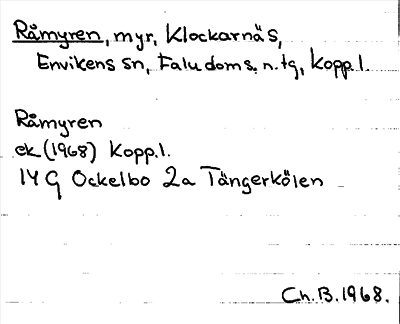 Råmyren, myr, Klockarnäs,
Envikens sn, Falu doms. n. tg, Kopp. l.
Råmyren
ek (1968) Kopp. l.
14 G Ockelbo 2a Tängerkölen
Ch. B. 1968.